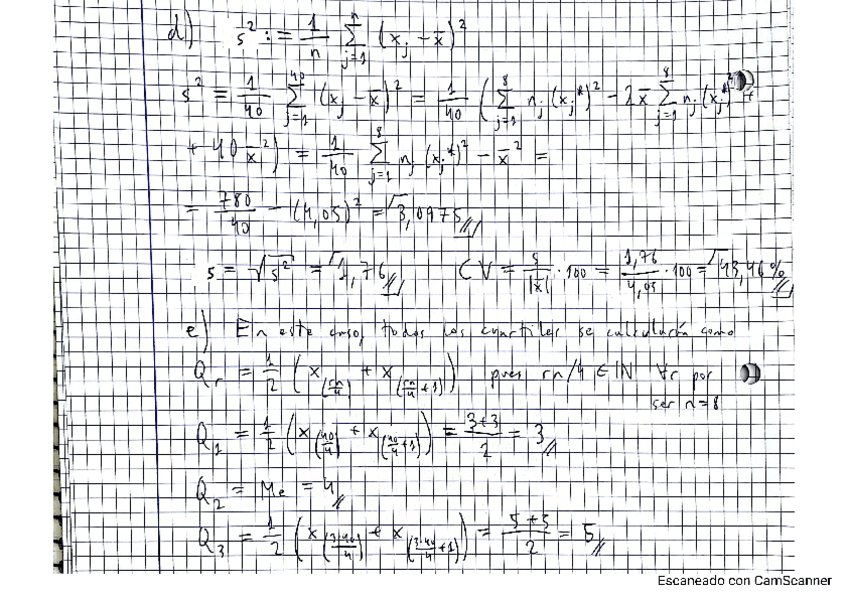 d) s² := 1/n ∑_{j=1}^{n} (x_j − x̄)²
s² = 1/40 ∑_{j=1}^{40} (x_j − x̄)² = 1/40 (∑_{j=1}^{8} n_j (x_j*)² − 2x̄ ∑_{j=1}^{8} n_j (x_j*) +
+ 40 x̄²) = 1/40 ∑_{j=1}^{8} n_j (x_j*)² − x̄² =
= 780/40 − (4,05)² = 3,0975
s = √s² = 1,76 CV = s/|x̄| · 100 = 1,76/4,05 · 100 = 43,46 %
e) En este caso, todos los cuartiles se calcularán como
Q_r = 1/2 (x_(rn/4) + x_(rn/4+1)) pues rn/4 ∈ ℕ ∀r por
ser n=8
Q_1 = 1/2 (x_(40/4) + x_(40/4+1)) = (3+3)/2 = 3
Q_2 = Me = 4
Q_3 = 1/2 (x_(3·40/4) + x_(3·40/4+1)) = (5+5)/2 = 5
Escaneado con CamScanner